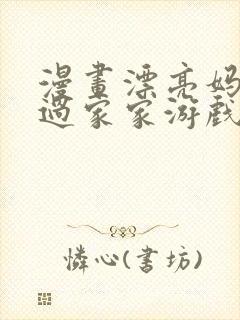 漫畫漂亮妈
過家家游戲
憐心(書坊)